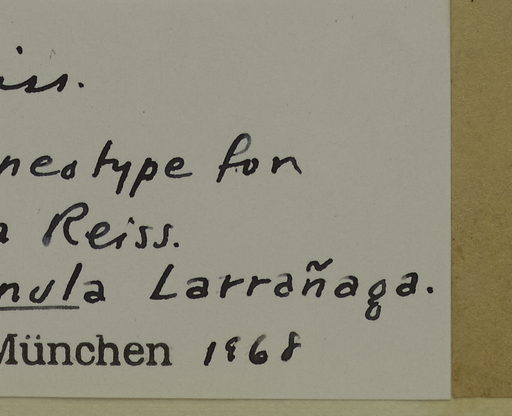 iss.
neotype for
a Reiss.
nula Larrañaga.
München 1968